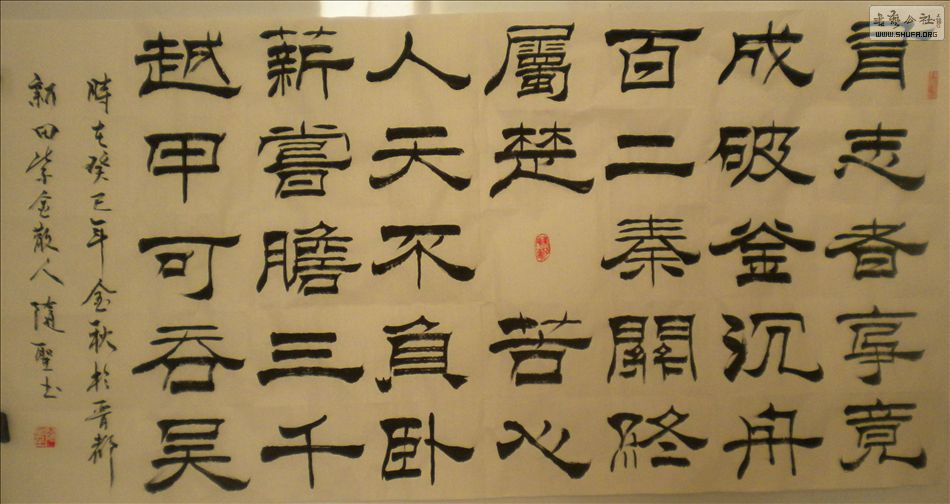 有志者事竟
成破釜沉舟
百二秦關終
屬楚 苦心
人天不負卧
薪嘗膽三千
越甲可吞吴
時在癸巳年金秋於晋都
新田紫金散人隨聖书
书藝公社
WWW.SHUFA.ORG